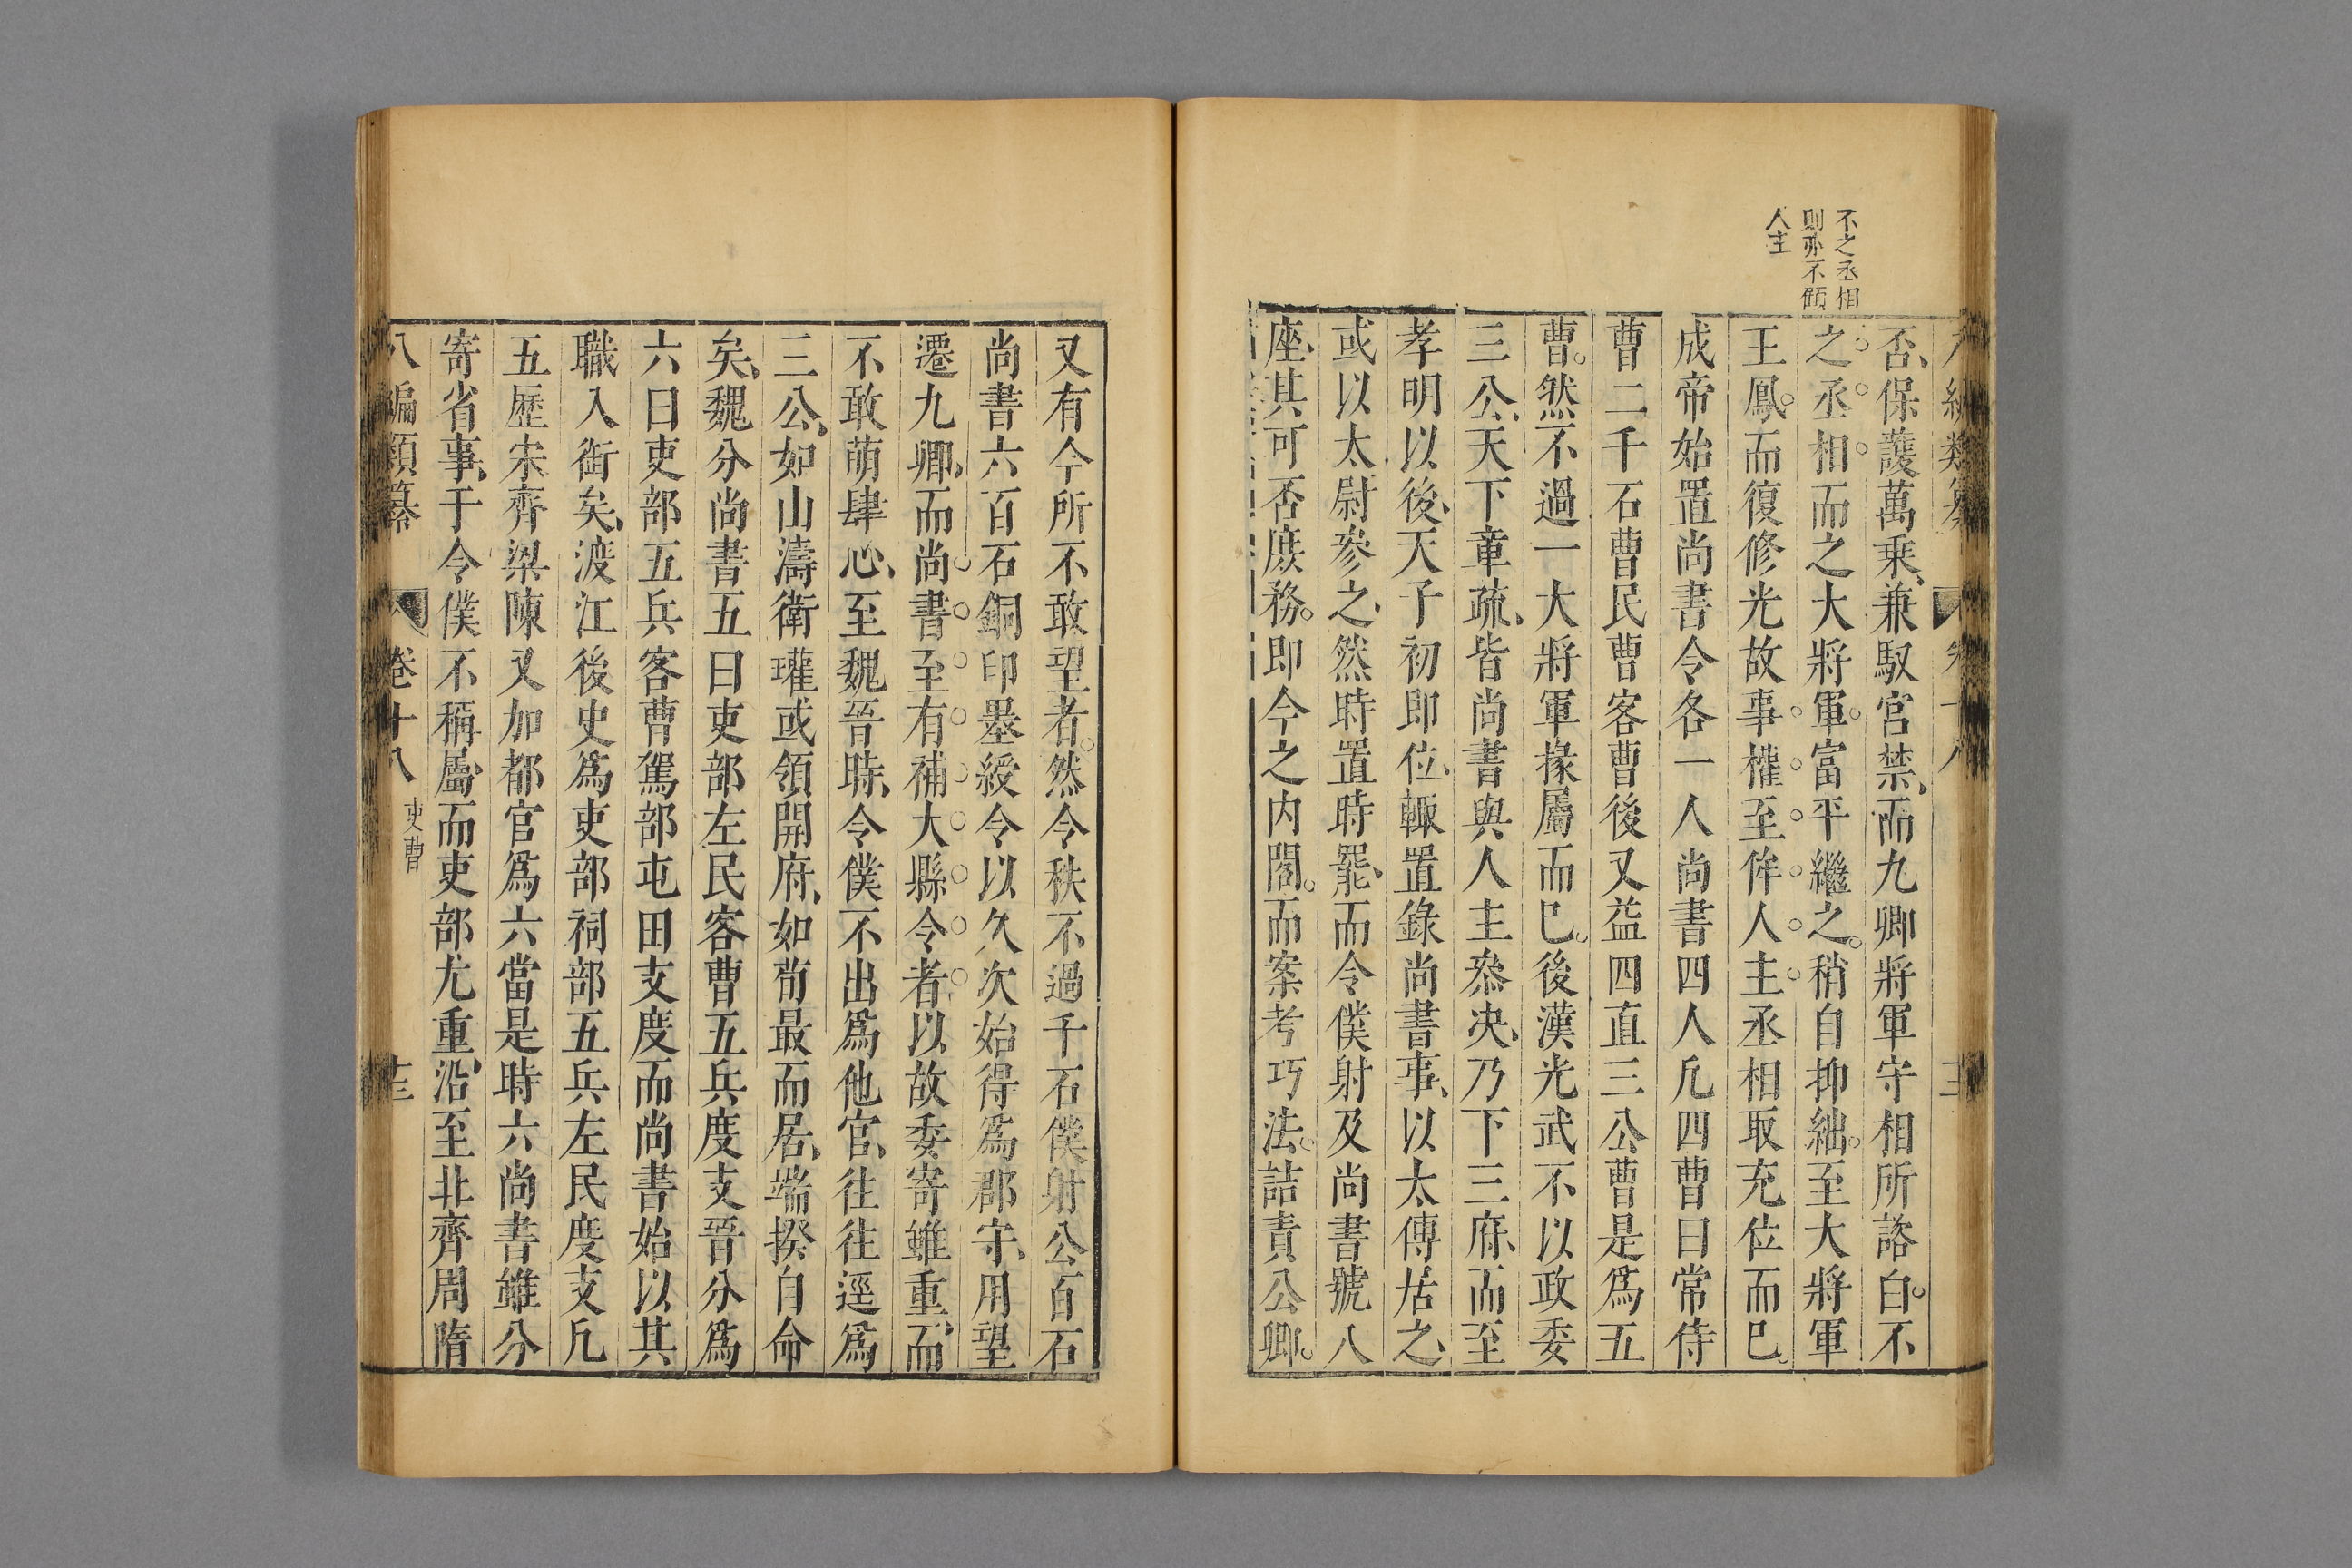 不之丞相
則亦不顧
人主
否保護萬乗兼馭官禁而九卿將軍守相所諮白不
之丞相而之大將軍富平繼之稍自抑絀至大將軍
王鳳而復修光故事權至侔人主丞相取充位而已
成帝始置尚書令各一人尚書四人凡四曹曰常侍
曹二千石曹民曹客曹後又益四直三公曹是爲五
曹然不過一大將軍掾屬而已後漢光武不以政委
三公天下章疏皆尚書與人主叅决乃下三府而至
孝明以後天子初即位輙置錄尚書事以太傅居之
或以太尉參之然時置時罷而令僕射及尚書號八
座其可否庻務即今之内閣而案考巧法詰責公卿
又有今所不敢望者然令秩不過千石僕射公百石
尚書六百石銅印墨綬令以久次始得爲郡守用望
遷九卿而尚書至有補大縣令者以故委寄雖重而
不敢萌肆心至魏晉時令僕不出爲他官往往逕爲
三公如山濤衛瓘或領開府如荀最而居端揆自命
矣魏分尚書五曰吏部左民客曹五兵度支晉分爲
六曰吏部五兵客曹駕部屯田支度而尚書始以其
職入銜矣渡江後史爲吏部祠部五兵左民度支凡
五歷宋齊梁陳又加都官爲六當是時六尚書雖分
寄省事于令僕不稱屬而吏部尤重沿至北齊周隋
八編類纂　卷十八　吏曹　十三